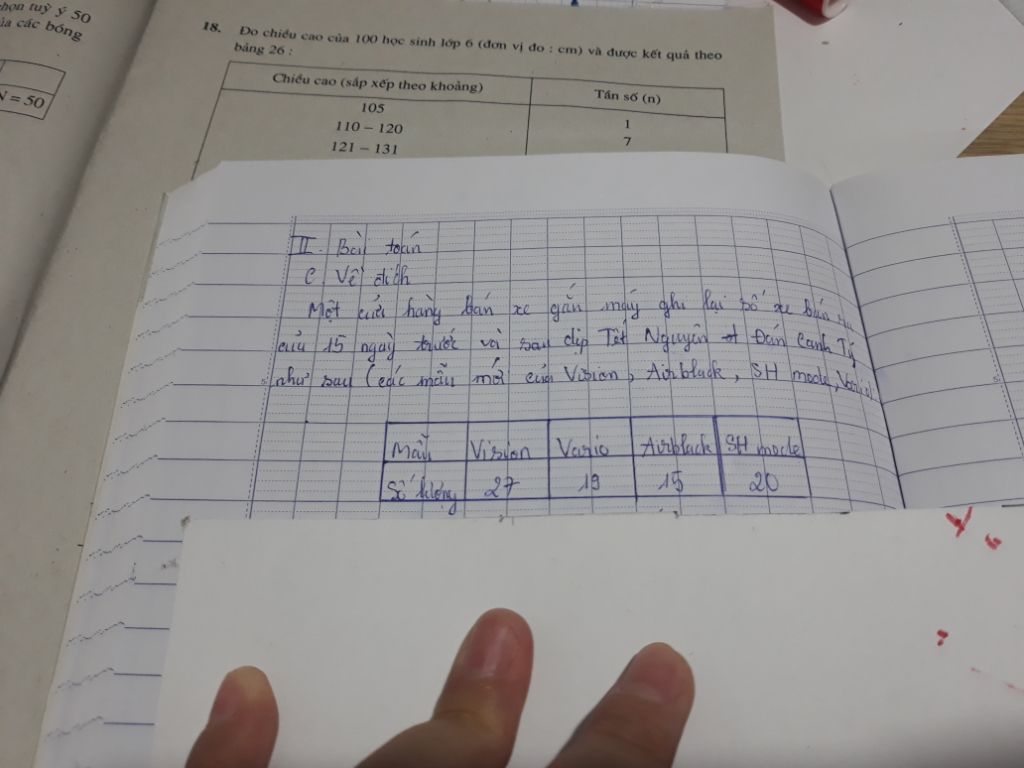 họn tuỳ ý 50
ủa các bóng
N = 50
18. Đo chiều cao của 100 học sinh lớp 6 (đơn vị đo : cm) và được kết quả theo
bảng 26 :
Chiều cao (sắp xếp theo khoảng) Tần số (n)
105 1
110 – 120 7
121 – 131
II. Bài toán
C Về đích
Một cửa hàng bán xe gắn máy ghi lại số xe bán
của 15 ngày trước và sau dịp Tết Nguyên Đán Canh Tý
như sau (các mẫu mới của Vision, Airblack, SH mode, Vario)
Mẫu Vision Vario Airblack SH mode
Số lượng 27 19 15 20